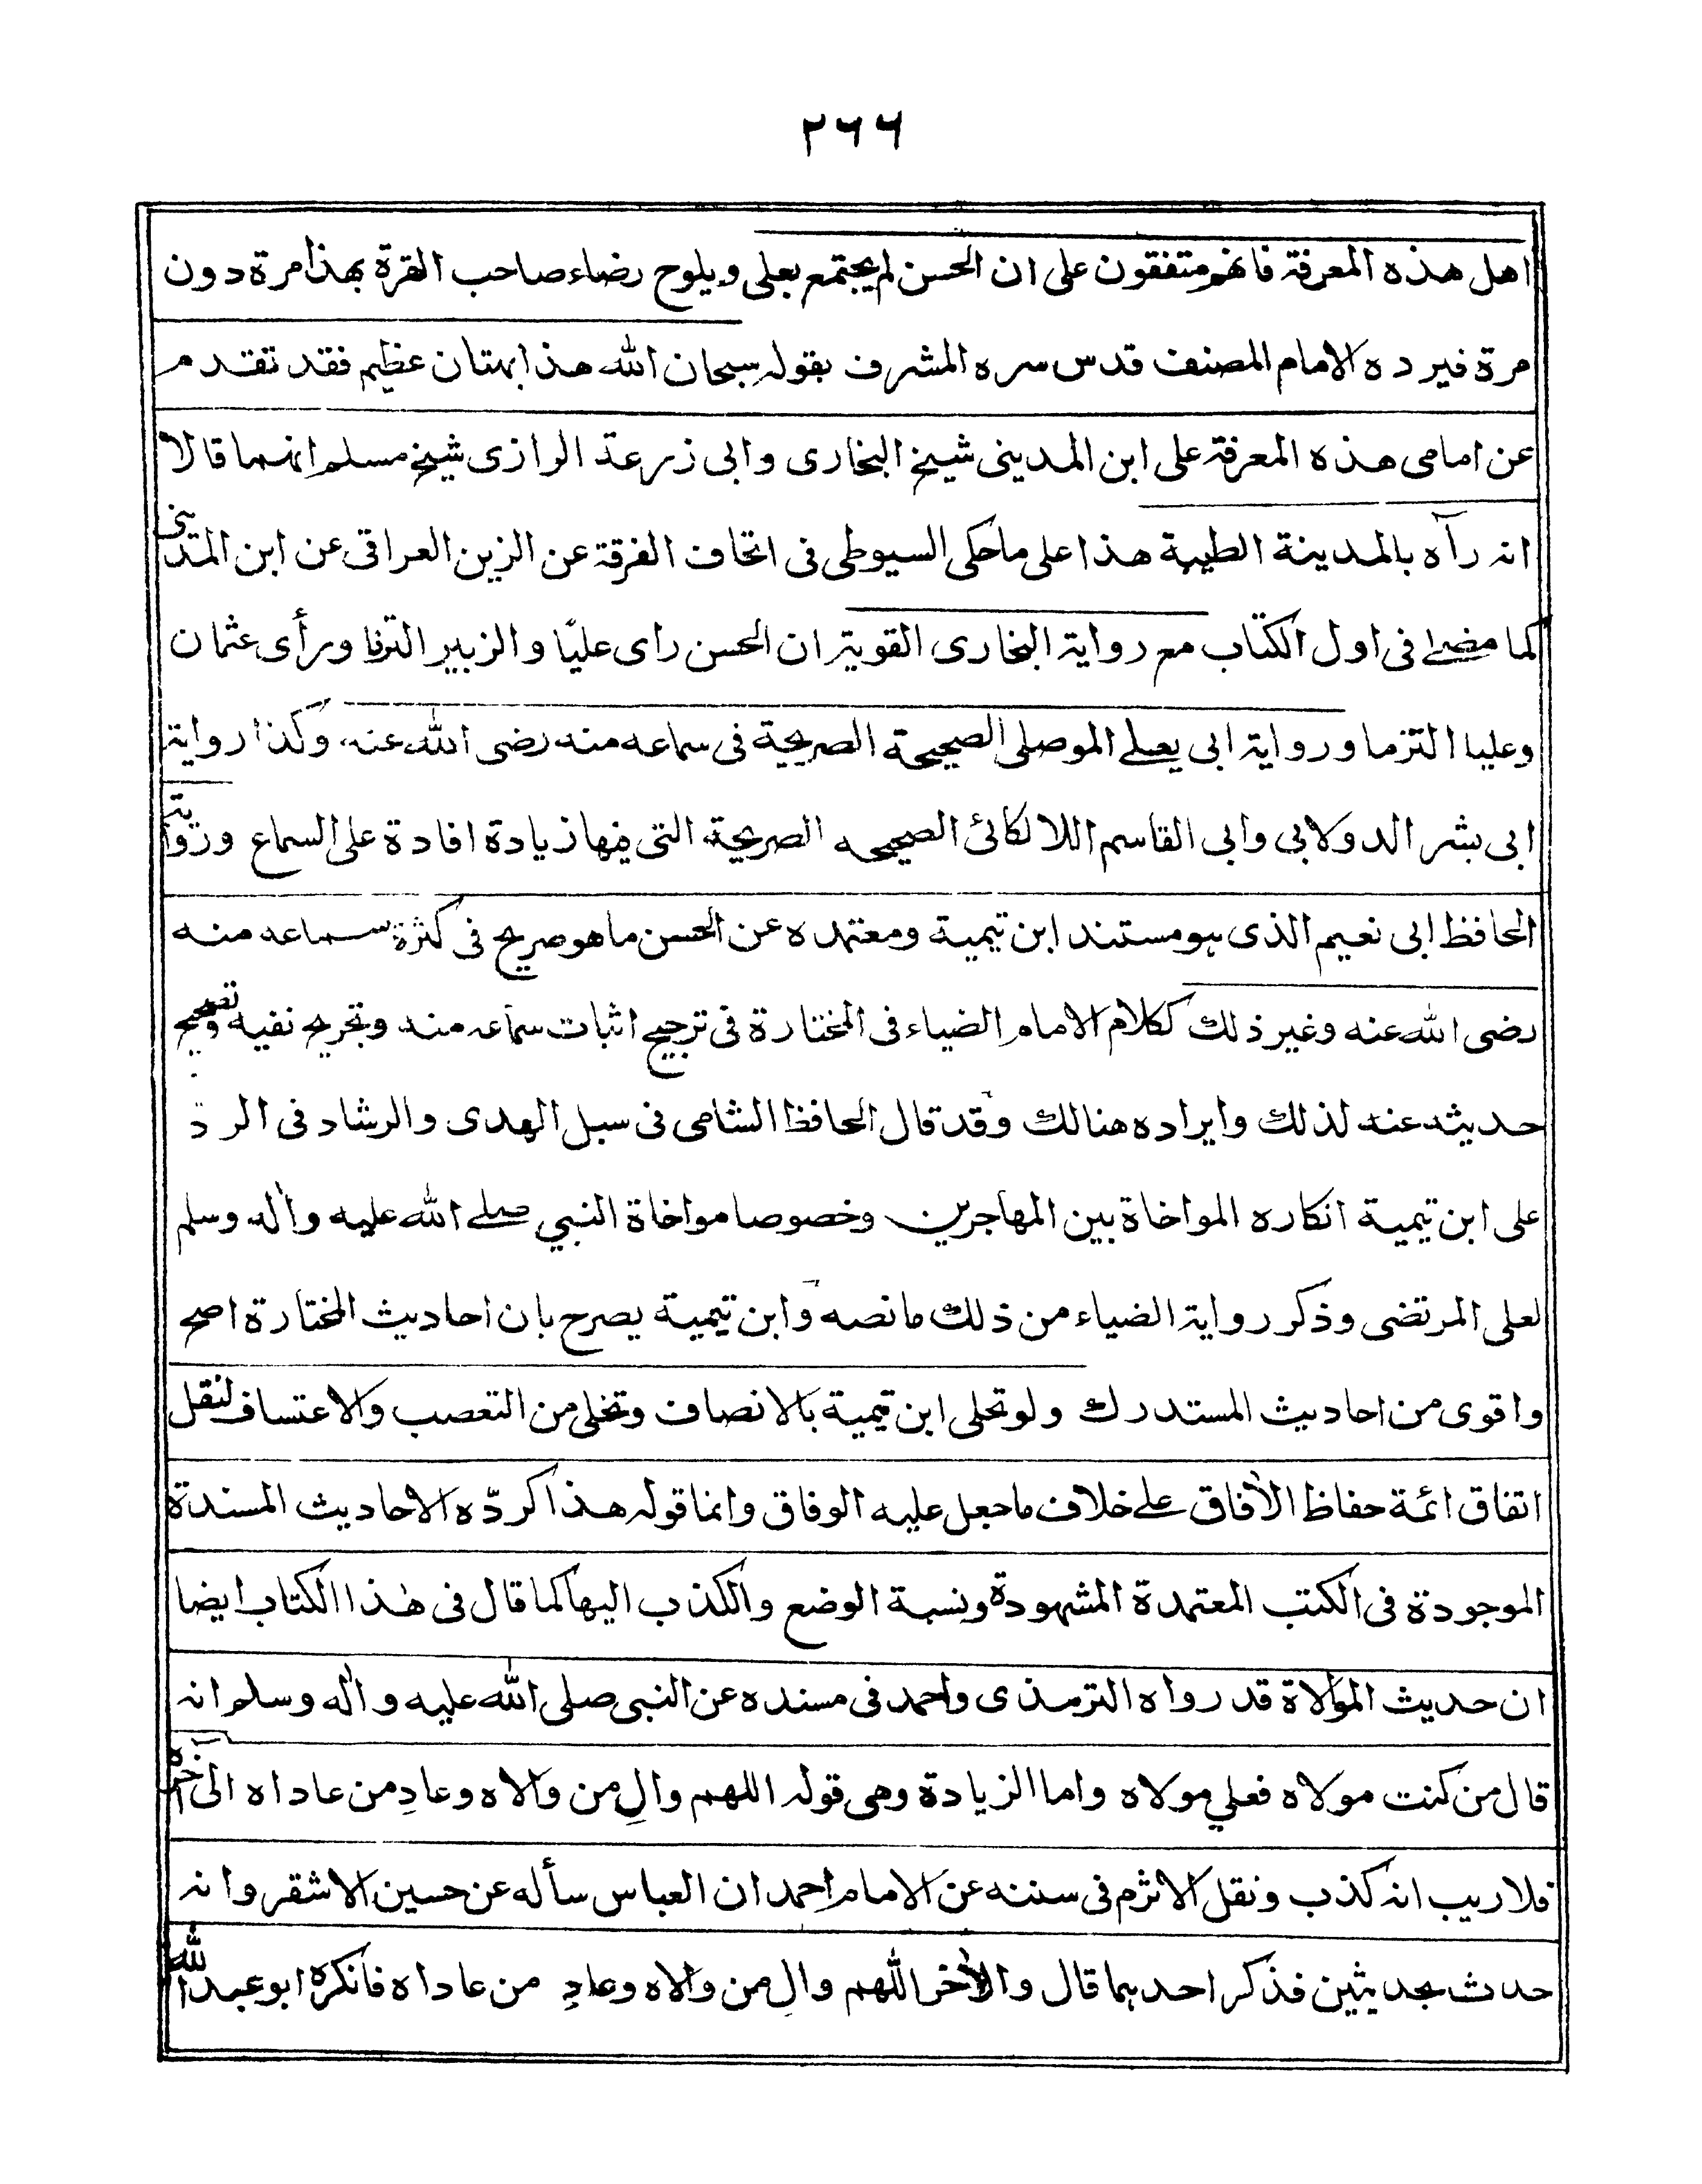 ٢٦٦
اهل هذه المعرفة فانهم متفقون على ان الحسن لم يجتمع بعلى ويلوح رضاء صاحب القرة بهذا مرة دون
مرة فيرده الامام المصنف قدس سره المشرف بقوله سبحان الله هذا بهتان عظيم فقد تقدم
عن امامى هذه المعرفة على ابن المدينى شيخ البخارى وابى زرعة الرازى شيخ مسلم انهما قالا
انه رآه بالمدينة الطيبة هذا على ماحكى السيوطى فى اتحاف الفرقة عن الزين العراقى عن ابن المدينى
كما مضے فى اول الكتاب مع رواية البخارى القوية ان الحسن راى عليّا والزبير التزما ورأى عثمان
وعليا التزما ورواية ابى يعلے الموصلى الصحيحة الصريحة فى سماعه منه رضى الله عنه وكذا رواية
ابى بشر الدولابى وابى القاسم اللالكائى الصحيحه الصريحة التى فيها زيادة افادة على السماع ورواية
الحافظ ابى نعيم الذى هو مستند ابن تيمية ومعتمده عن الحسن ما هو صريح فى كثرة سماعه منه
رضى الله عنه وغير ذلك ككلام الامام الضياء فى المختارة فى ترجيح اثبات سماعه منه وتجريح نفيه وتصحيح
حديثه عنه لذلك وايراده هنالك وقد قال الحافظ الشامى فى سبل الهدى والرشاد فى الرد
على ابن تيمية انكاره المواخاة بين المهاجرين وخصوصا مواخاة النبي صلے الله عليه واله وسلم
لعلى المرتضى وذكر رواية الضياء من ذلك ما نصه وابن تيمية يصرح بان احاديث المختارة اصح
واقوى من احاديث المستدرك ولو تحلى ابن تيمية بالانصاف وتخلى من التعصب والاعتساف لنقل
اتفاق ائمة حفاظ الآفاق علے خلاف ما جعل عليه الوفاق وانما قوله هذا كردّه الاحاديث المسندة
الموجودة فى الكتب المعتمدة المشهودة ونسبة الوضع والكذب اليها كما قال فى هذا الكتاب ايضا
ان حديث الموالاة قد رواه الترمذى واحمد فى مسنده عن النبى صلى الله عليه واله وسلم انه
قال من كنت مولاه فعلي مولاه واما الزيادة وهى قوله اللهم والِ من والاه وعادِ من عاداه الى آخره
فلا ريب انه كذب ونقل الاثرم فى سننه عن الامام احمد ان العباس سأله عن حسين الاشقر وانه
حدث بحديثين فذكر احدهما قال والآخر اللهم والِ من والاه وعادِ من عاداه فانكره ابو عبد الله